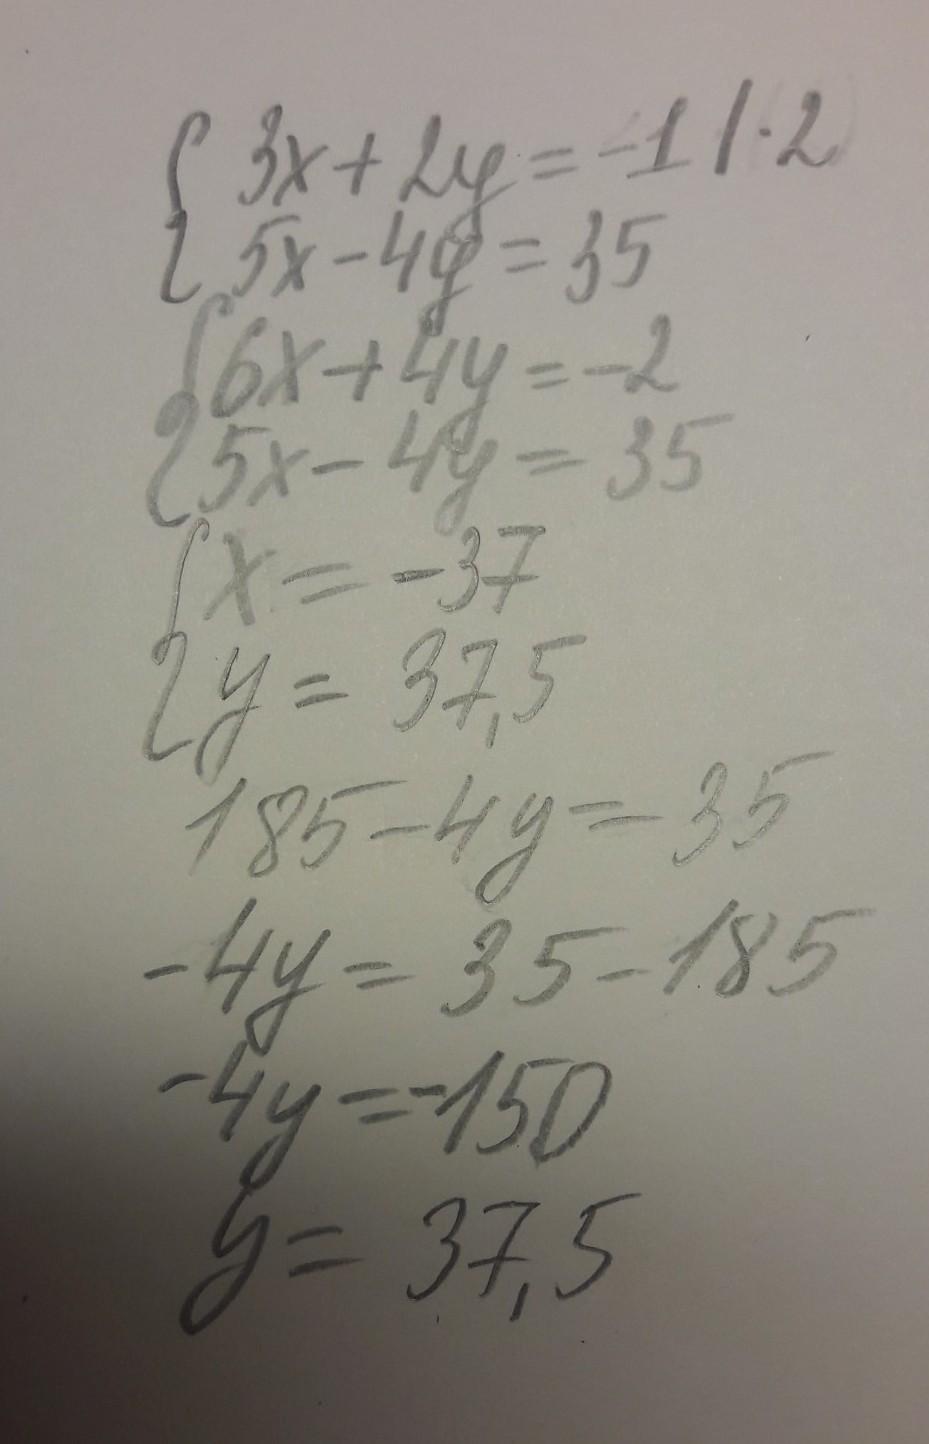 { 3x + 2y = -1 | · 2
5x - 4y = 35
{ 6x + 4y = -2
5x - 4y = 35
{ x = -37
y = 37,5
185 - 4y = 35
-4y = 35 - 185
-4y = -150
y = 37,5